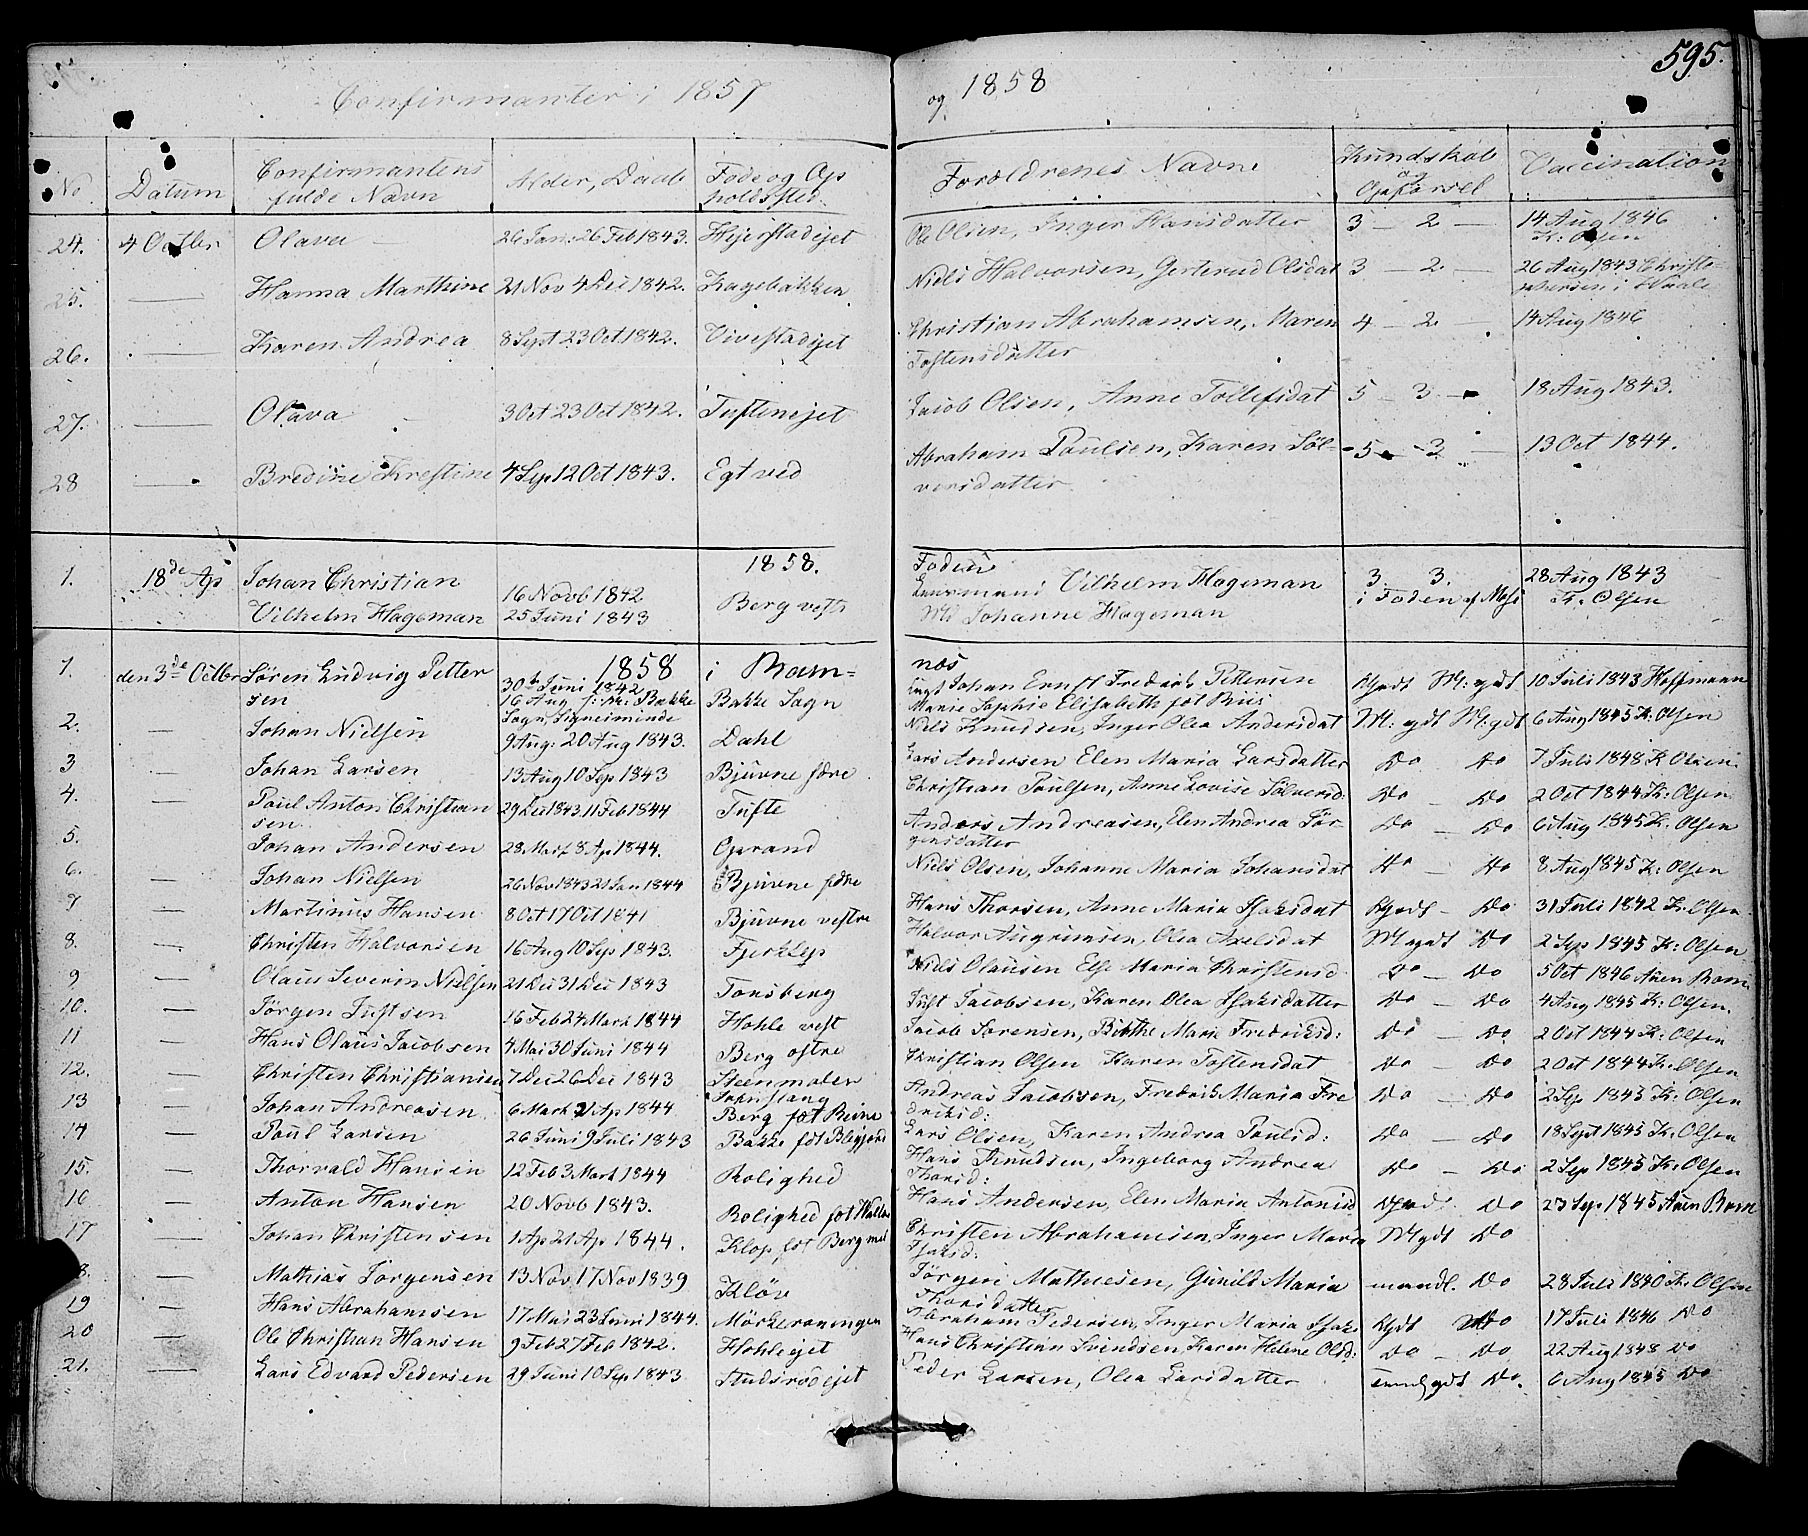 595.
Confirmanter i 1857 og 1858
No Datum Confirmantens fulde Navn Alder, Daab Føde og Opholdssted. Forældrenes Navne Kundskab og Opførsel Vaccination
24. 4 Octbr Olava 26 Jan: 26 Feb 1843. Hijerstadejet Ole Olsen, Inger Hansdatter 3 — 2 — 14 Aug 1846 K: Olsen
25. — Hanna Marthine 21 Nov 4 Dec 1842. Kagebakken Niels Halvorsen, Gerterud Olsdat 3 — 2 — 26 Aug 1843 Christophersen i Vaale
26. — Karen Andrea 8 Sept 23 Oct 1842. Vivestadejet Christian Abrahamsen, Maren Tostensdatter 4 — 2 — 14 Aug 1846
27. — Olava 3 Oct 23 Oct 1842. Tuftenejet Jacob Olsen, Anne Tollefsdat 5 — 3 — 18 Aug 1843.
28 — Bredine Krestine 4 Sep 12 Oct 1843. Egtved Abraham Paulsen, Karen Sølversdatter 5 — 2 — 13 Oct 1844.
1858.
1. 18de Ap Johan Christian Vilhelm Hageman 16 Novb 1842 25 Juni 1843 Berg vestr Vilhelm Hageman Johanne Hageman 3. 3. 28 Aug 1843 K. Olsen
1858 i Ramnæs
1. den 3de Octbr Søren Ludvig Pettersen 30te Juni 1842 16 Aug Bakke Sogn Johan Ernst Fredrik Pettersen Marie Sophie Elisabeth føt Riis Mgodt M: godt 10 Juli 1843 Hoffmann
2. — Johan Nielsen 9 Aug: 20 Aug 1843. Dahl Niels Knudsen, Inger Olea Andersdat M: godt M: godt 6 Aug 1845 K: Olsen
3 — Johan Larsen 13 Aug 10 Sep 1843 Bjuvne Lars Andersen Elen Maria Larsdatter Do Do 7 Juli 1848 K Olsen
4. — Poul Anton Christiansen 29 Dec 1843 11 Feb 1844 Tufte Christian Poulsen, Anne Lovise Sølversd: Do — Do 2 Oct 1844 K: Olsen
5. Johan Andersen 28 Mars 8 Ap 1844. Gjerand Anders Andreasen, Elen Andrea Jørgensdatter Do — Do 6 Aug 1845 K: Olsen
6. — Johan Nielsen 26 Nov 1843 21 Jan 1844 Bjuvne Niels Olsen, Johanne Maria Johansdat Do — Do 8 Aug 1845 K: Olsen
7 — Martinus Hansen 8 Oct 17 Oct 1841 Bjuvne vestre Hans Thorsen, Anne Maria Isaksdat Do 31 Juli 1842 K: Olsen
8. — Christen Halvorsen 16 Aug 10 Sep 1843. Halvor Olea Axelsdat M godt Do 2 Sep 1845 K: Olsen
9 — Olaus Severin Nielsen 21 Dec 31 Dec 1843 Tonsberg Niels Olausen Else Maria Christensd Do — Do 5 Oct 1846
10. — Jørgen Juftsen 16 Feb 24 Mark 1844 Hohle vest Juft Jacobsen, Karen Olea Isaksdatter Do — Do 4 Aug 1845 K: Olsen.
11 — Hans Olaus Jacobsen 4 Mai 30 Juni 1844 Berg ostre Jacob Sørensen, Birthe Marie Fredriksd: Do — Do 2 Oct 1844 K: Olsen
12. — Christen Christiansen 7 Dec 26 Dec 1843 Christian Olsen Karen Tostensdat Do — Do 2 Oct 1844 K: Olsen
13 — Johan Andreasen 6 Mark 21 Ap 1844 Berg føt Andreas Jacobsen, Fredrik Maria Fredriksd: Do — Do 2 Sep 1845 K: Olsen
14 — Poul Larsen 26 Juni 9 Juli 1843 Bakke føt Lars Olsen, Karen Andrea Poulsd: Do — Do 18 Sept 1845 K: Olsen
15. — Thorvald Hansen 12 Feb 3 Mark 1844 Rolighed Hans Knudsen, Ingeborg Andrea Thorsd: Do — Do 2 Sep 1845 K. Olsen
16 — Anton Hansen 20 Novb 1843. Rolighed føt Hans Andersen, Elen Maria Antonisd Do 23 Sep 1845
17 — Johan Christensen 1 Ap 21 Ap 1844. Klop føt Berg Christen Abrahamsen, Inger Maria Isaksd: M godt Do
8. — Mathias Jørgensen 13 Nov 17 Nov 1839 Kløv Jørgen Mathiesen, Gunild Maria Thorsdatter Do 28 Juli 1840 K. Olsen
19 — Hans Abrahamsen 17 Mai 23 Juni 1844. Mørkerønningen Abraham Pedersen, Inger Maria Isaks Do 17 Juli 1846 Do
20 — Ole Christian Hansen 9 Feb 27 Feb 1842. Hohleejet Hans Christian Svendsen, Karen Helene Olsd: Do — Do 22 Aug 1848 Do
21. — Lars Edvard Pedersen 29 Juni 10 Sep 1843 Studsrødejet Peder Larsen, Olea Larsdatter Do. 6 Aug 1845 Do